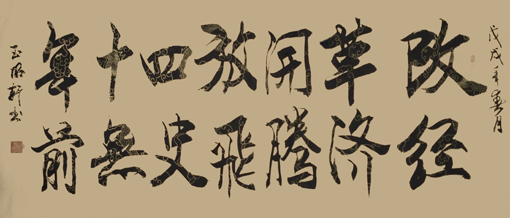 戊戌年月
改革开放四十年
经济腾飞史无前
玉轩书